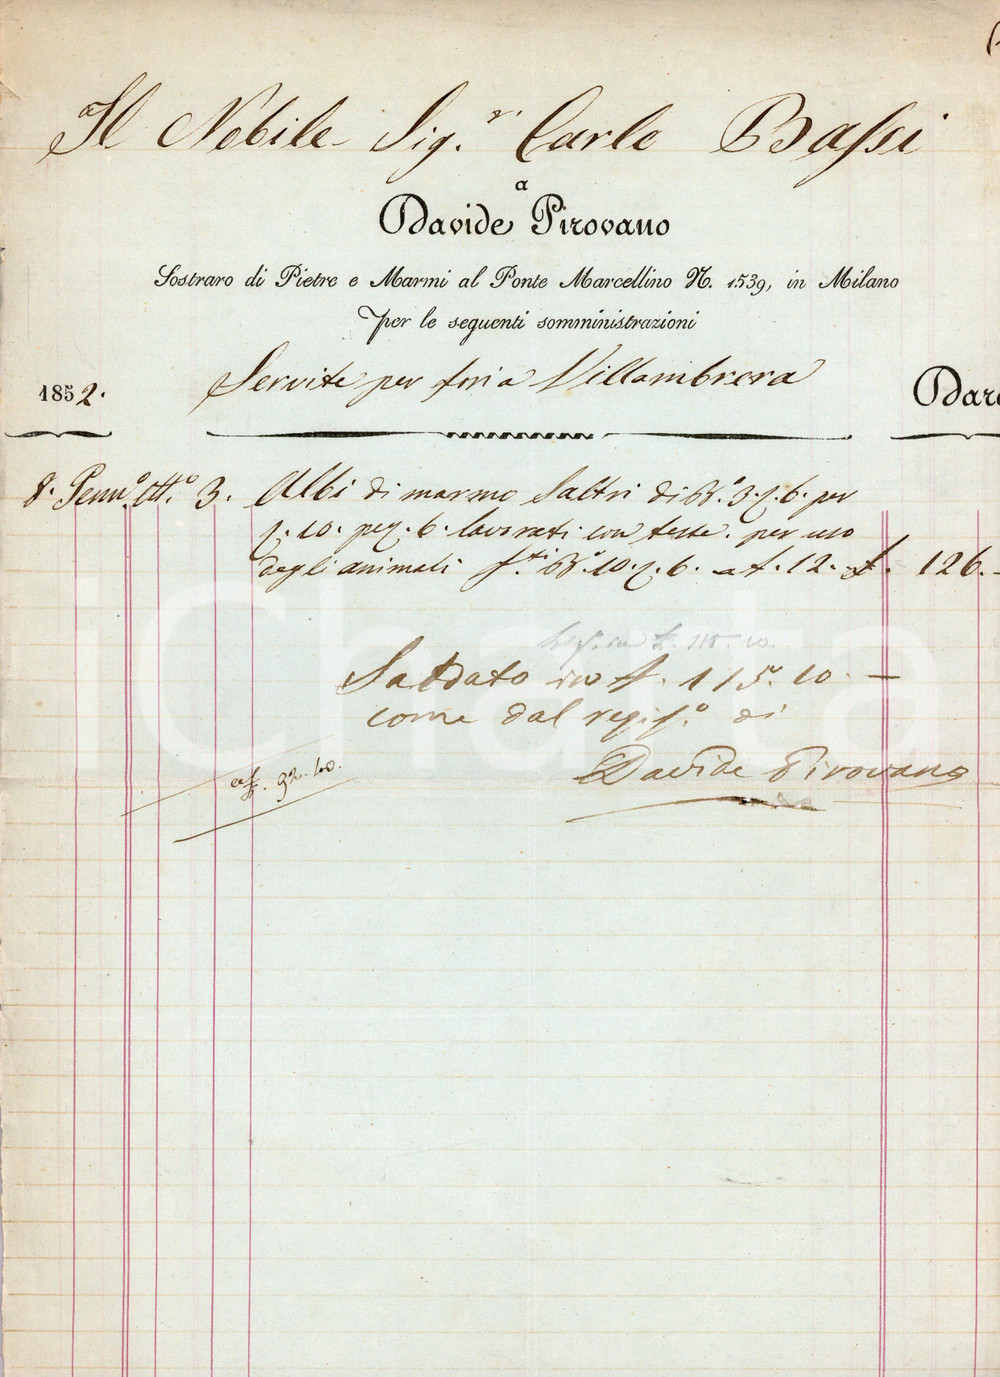 Il Nobile Sig.r Carlo Bassi
a
Davide Pirovano
Sostraro di Pietre e Marmi al Ponte Marcellino N. 1539, in Milano
per le seguenti somministrazioni
1852. Servite per Villambrera Dare
8. Genn.o N.o 3. Albi di marmo Saltri di 3. 6. per
10. pez. 6. lavorati con teste. per uso
degli animali 10. 6. a £. 12. £. 126.-
£. 115. 10.
Saldato in £. 115. 10. -
come dal di
£. 92. 40.
Davide Pirovano
iCharta